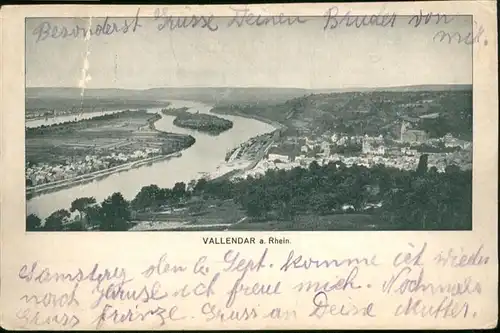 Besonderst Grüsse Deinen Bruder von
mir.
VALLENDAR a. Rhein.
Samsterg den 6 Sept. komme ich wieder
nach Hause ich freue mich. Nochmals
Gruss Gruss an Deine Mutter.